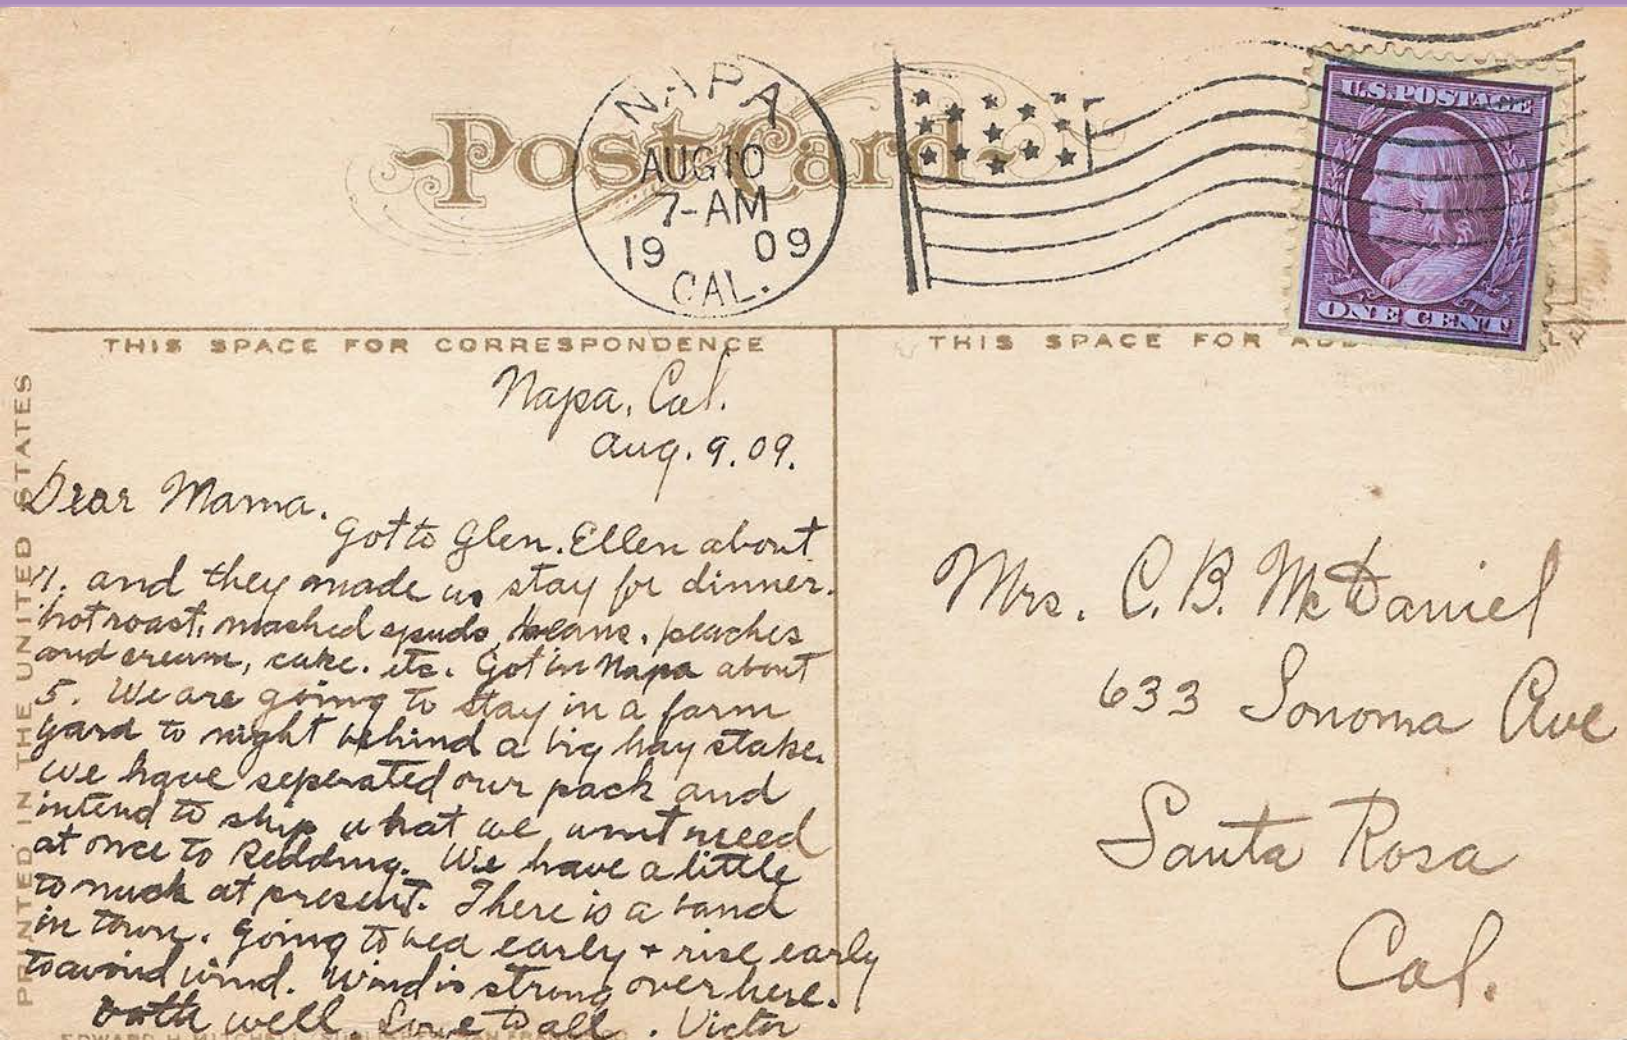 Post Card
NAPA
AUG 10
7-AM
19 09
CAL.
U.S. POSTAGE
ONE CENT
THIS SPACE FOR CORRESPONDENCE
THIS SPACE FOR
PRINTED IN THE UNITED STATES
Napa, Cal.
Aug. 9. 09.
Dear Mama.
Got to Glen. Ellen about
and they made us stay for dinner.
hot roast, mashed spuds, beans, peaches
and cream, cake. etc. Got in Napa about
5. We are going to stay in a farm
yard to night behind a big hay stake.
We have seperated our pack and
intend to ship what we wont need
at once to Redding. We have a little
to much at present. There is a band
in town. Going to bed early + rise early
to avoid wind. Wind is strong over here.
both well. Love to all. Victor
EDWARD H. MITCHELL, PUBLISHER, SAN FRANCISCO
Mrs. C. B. McDaniel
633 Sonoma Ave
Santa Rosa
Cal.